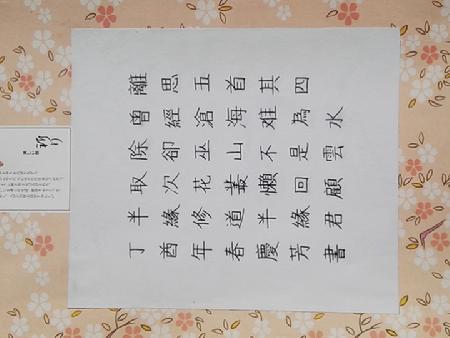 離思五首其四
曾經滄海难為水
除卻巫山不是雲
取次花叢懶回顧
半緣修道半緣君
丁酉年春慶芳書
祈り